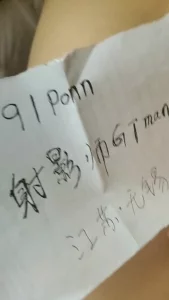 91Ponn
射影师GTman
江苏·无锡